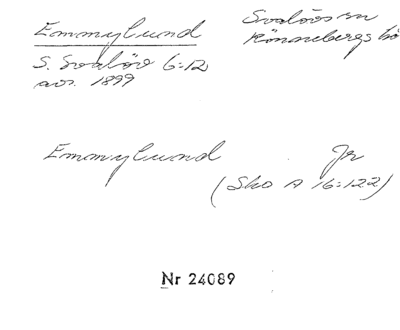 Emmylund
Svalövs sn
Rönnebergs hd
S. Svalöv 6:12
avs. 1899
Emmylund Jr
(Sko A 16:122)
Nr 24089